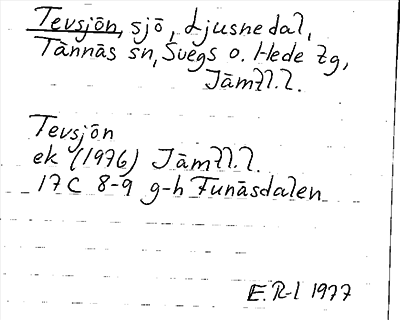 Tevsjön, sjö, Ljusnedal,
Tännäs sn, Svegs o. Hede tg,
Jämtl.l.
Tevsjön
ek (1976) Jämtl.l.
17C 8-9 g-h Funäsdalen
E.R-l 1977